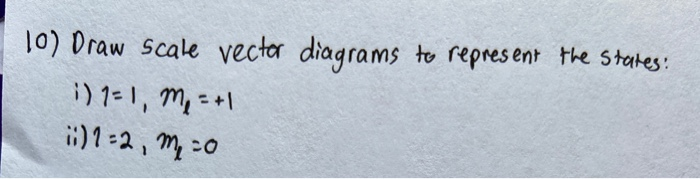 10) Draw scale vector diagrams to represent the states:
i) l=1, mₗ=+1
ii) l=2, mₗ=0